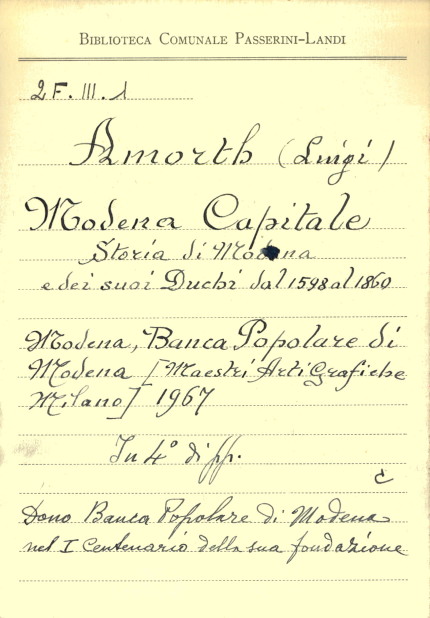 BIBLIOTECA COMUNALE PASSERINI-LANDI
2F. III. 1
Amorth (Luigi)
Modena Capitale
Storia di Modena
e dei suoi Duchi dal 1598 al 1860
Modena, Banca Popolare di
Modena [Maestri Arti Grafiche
Milano] 1967
In 4° di pp.
C
Dono Banca Popolare di Modena
nel I Centenario della sua fondazione